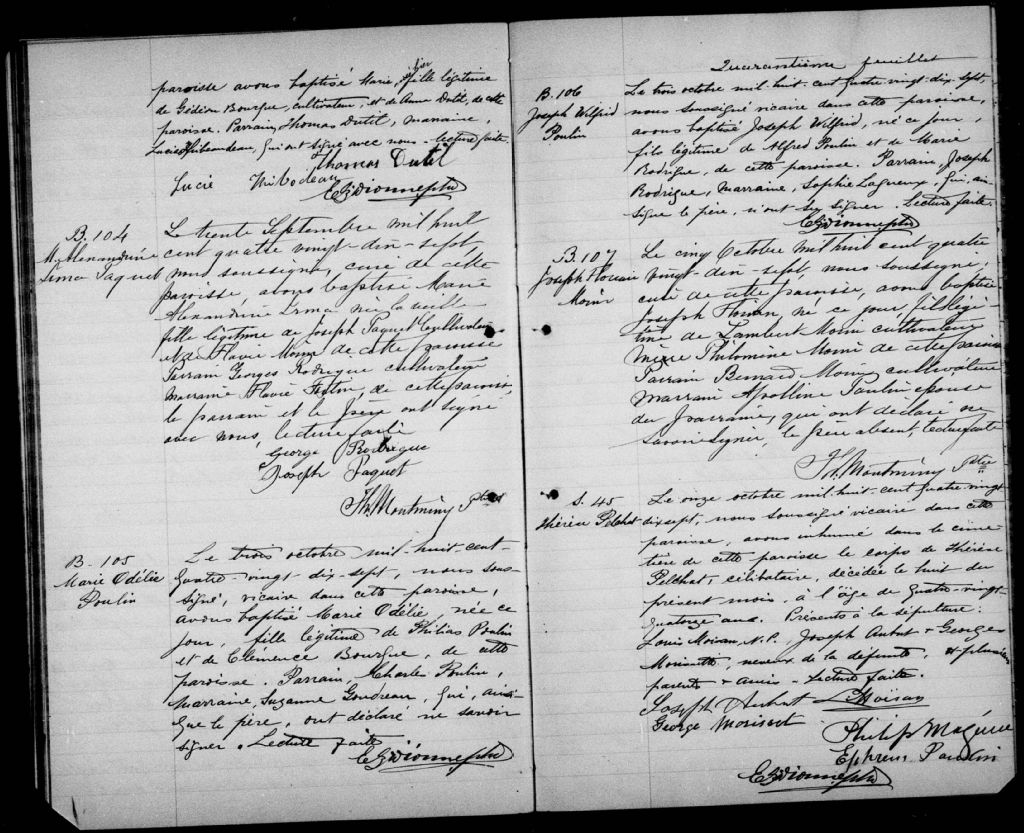 hier
paroisse avons baptisé Marie, fille légitime
de Gédéon Bourque, cultivateur, et de Anna Dutil, de cette
paroisse. Parrain, Thomas Dutil, marraine,
Lucie Thibaudeau, qui ont signé avec nous. Lecture faite.
Thomas Dutil
Lucie Thibodeau
EGDionne ptre
B. 104
M. Alexandrine
Irma Paquet
Le trente Septembre mil huit
cent quatre vingt-dix-sept,
nous soussigné, curé de cette
paroisse, avons baptisé Marie
Alexandrine Irma née la veille
fille légitime de Joseph Paquet Cultivateur
et de Flavie Morin de cette paroisse
Parrain Georges Rodrigue cultivateur
marraine Flavie, de cette paroisse,
le parrain et le père ont signé
avec nous, lecture faite
George Rodrigue
Joseph Paquet
Th. Montminy Ptre
B. 105
Marie Odélie
Poulin
Le trois octobre mil-huit-cent-
quatre-vingt-dix-sept, nous sous-
signé, vicaire dans cette paroisse,
avons baptisé Marie Odélie, née ce
jour, fille légitime de Philias Poulin
et de Clémence Bourque, de cette
paroisse. Parrain, Charle Poulin,
Marraine, Suzanne Goudreau, qui, ainsi
que le père, ont déclaré ne savoir
signer. Lecture faite
EGDionne ptre
Quarantième feuillet
B. 106
Joseph Wilfrid
Poulin
Le trois octobre mil-huit-cent-quatre-vingt-dix-sept,
nous soussigné vicaire dans cette paroisse,
avons baptisé Joseph Wilfrid, né ce jour,
fils légitime de Alfred Poulin et de Marie
Rodrigue, de cette paroisse. Parrain, Joseph
Rodrigue, Marraine, Sophie Lagueux, qui, ain-
si que le père, n'ont su signer. Lecture faite.
EGDionne ptre
B. 107
Joseph Florian
Morin
Le cinq Octobre mil huit cent quatre
vingt-dix-sept, nous soussigné,
curé de cette paroisse, avons baptisé
Joseph Florian, né ce jour, fils légi
time de Lambert Morin cultivateur
mère Philomène Morin de cette paroisse
Parrain Bernard Morin cultivateur
marraine Apolline Poulin épouse
du parrain, qui ont déclaré ne
savoir signer, le père absent, lecture faite
Th. Montminy Ptre
S. 45
Thérèse Pelchat
Le onze octobre mil-huit-cent-quatre-vingt
dix-sept, nous soussigné vicaire dans cette
paroisse, avons inhumé dans le cime-
tière de cette paroisse le corps de Thérèse
Pelchat, célibataire, décédée le huit du
présent mois, à l'âge de quatre-vingt-
quatorze ans. Présents à la sépulture:
Louis Moisan, N.P., Joseph Aubut & Georges
Morissette, neveux de la défunte, & plusieurs
parents & amis - Lecture faite.
Joseph Aubut L Moisan
George Morisset
Philip Maguire
Ephrem Poulin
EGDionne ptre